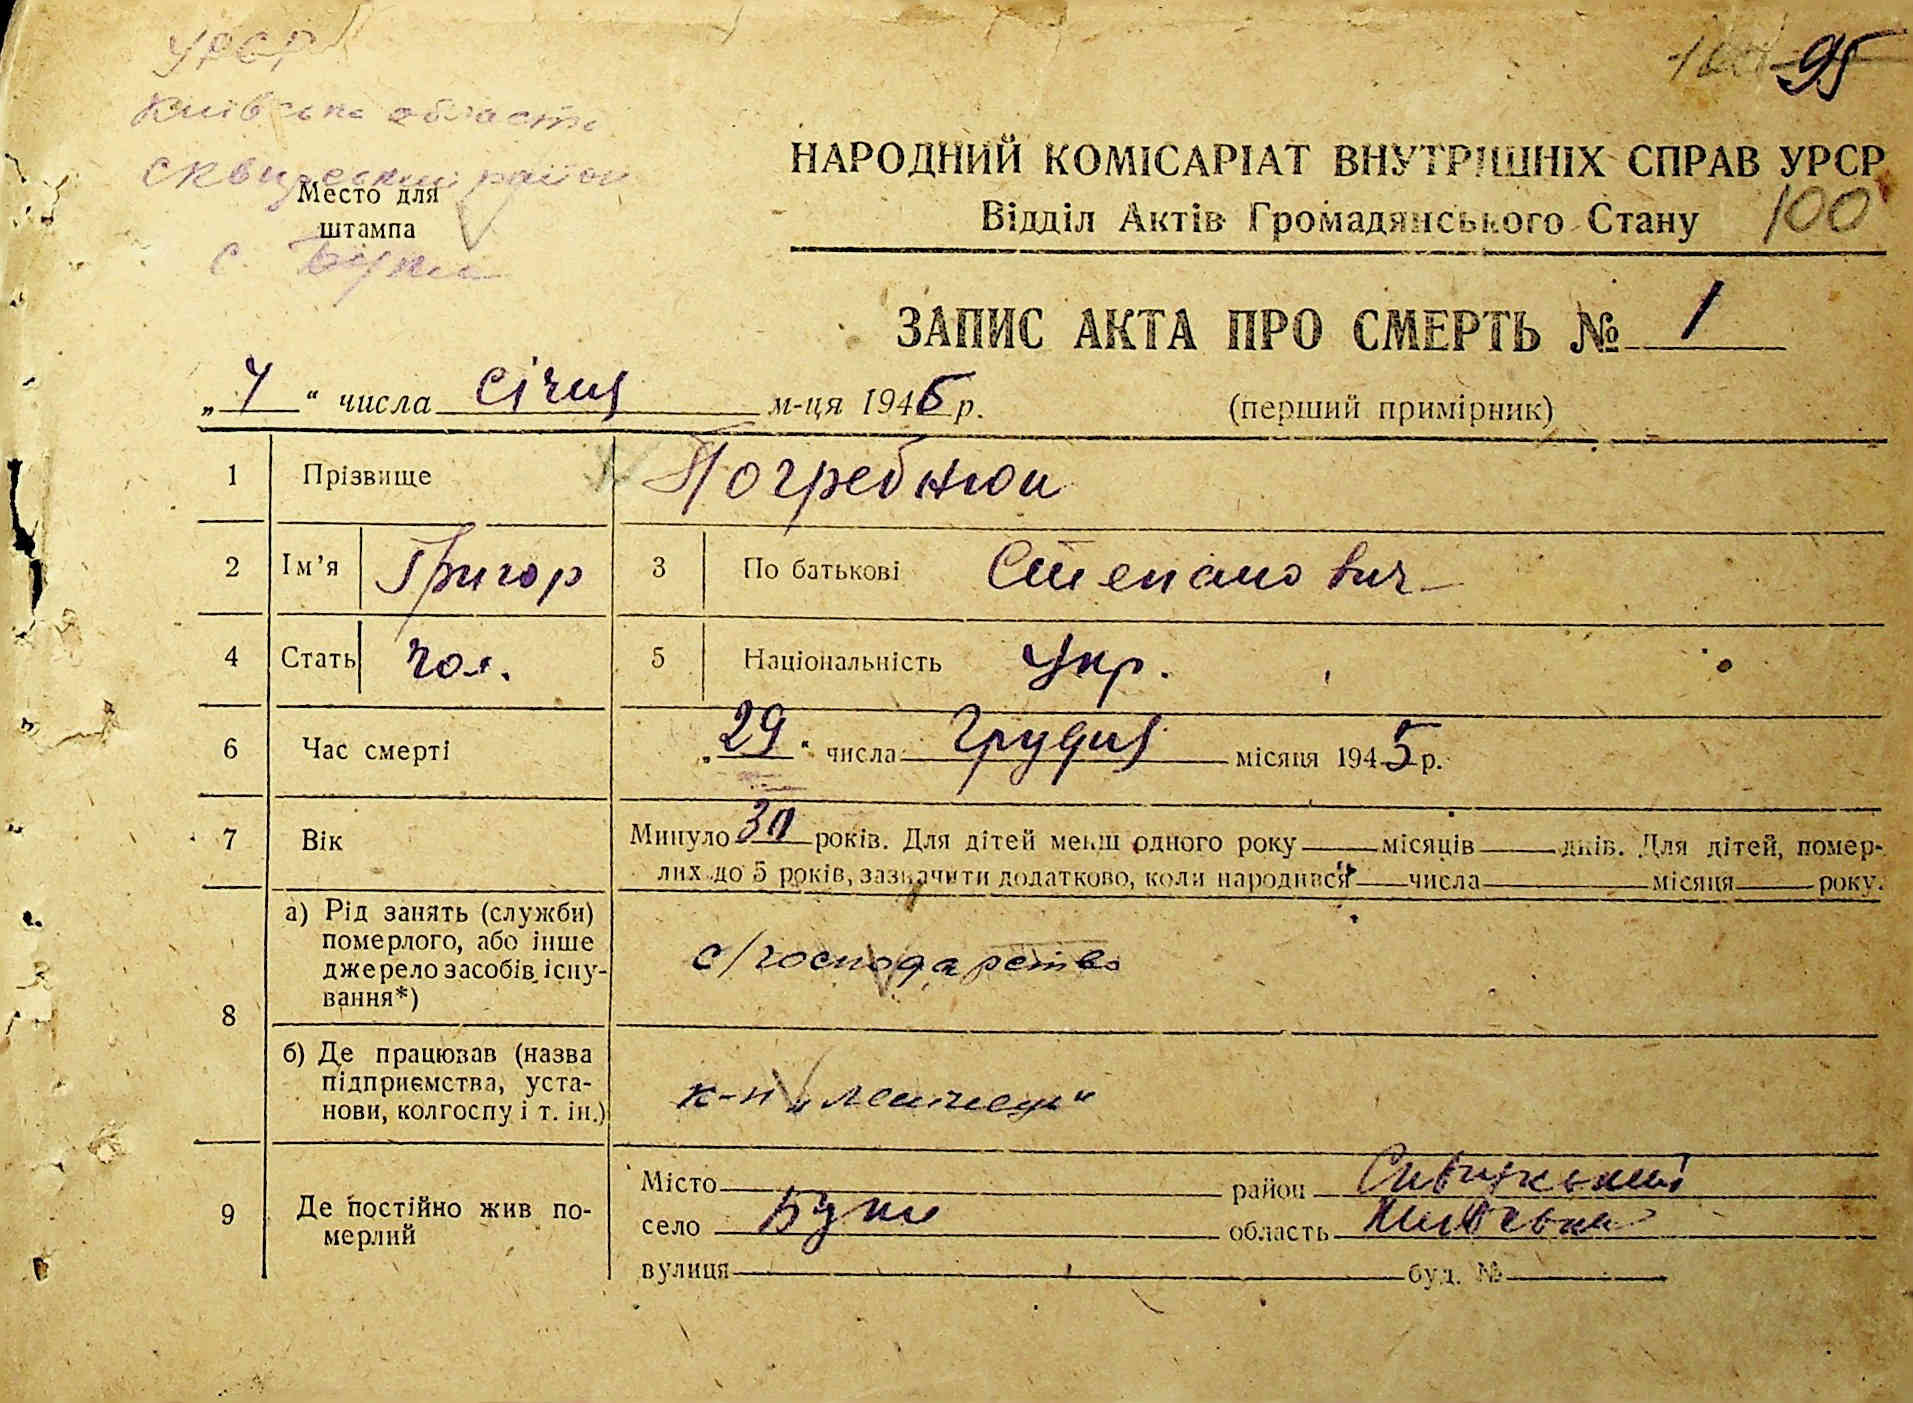 УРСР
Київська область
Сквирський район
с. Буки
95
НАРОДНИЙ КОМІСАРІАТ ВНУТРІШНІХ СПРАВ УРСР
Відділ Актів Громадянського Стану 100
Место для
штампа
ЗАПИС АКТА ПРО СМЕРТЬ № 1
„ 7 “ числа Січня м-ця 1946 р. (перший примірник)
1 Прізвище Погребнюк
2 Ім’я Григор 3 По батькові Степанович
4 Стать Чол. 5 Національність Укр.
6 Час смерті „ 29 “ числа Грудня місяця 1945 р.
7 Вік Минуло років. Для дітей менш одного року місяців днів. Для дітей, помер-
лих до 5 років, зазначити додатково, коли народився числа місяця року.
8 а) Рід занять (служби)
померлого, або інше
джерело засобів існу-
вання*)
с/господарство
б) Де працював (назва
підприємства, уста-
нови, колгоспу і т. ін.)
9 Де постійно жив по-
мерлий
Місто район Сквирський
село Буки область Київська
вулиця буд. №